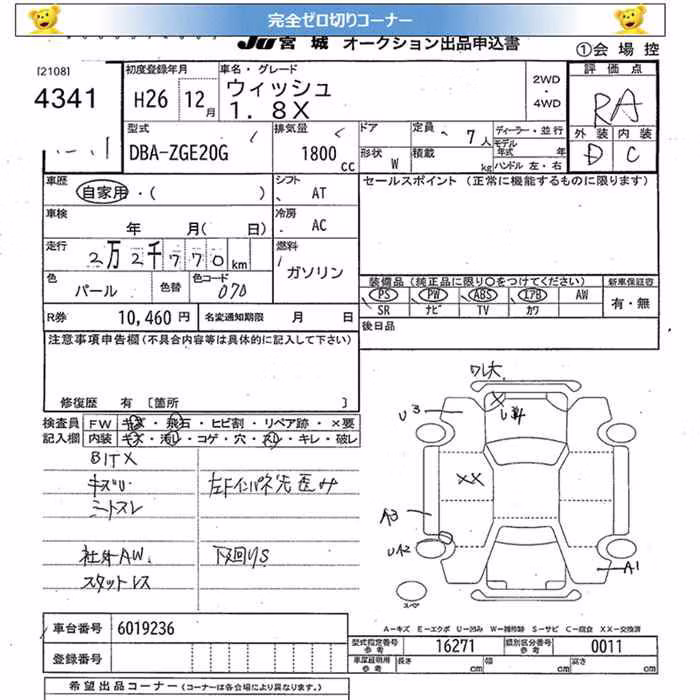 完全ゼロ切りコーナー
JU宮城 オークション出品申込書
①会場控
[2108]
4341
初度登録年月
H26 12月
車名・グレード
ウィッシュ
1.8X
2WD
・
4WD
評価点
RA
外装 内装
D C
型式
DBA-ZGE20G
排気量
1800
cc
ドア
形状 W
定員 7人
積載 kg
ディーラー・並行
モデル年式 年
ハンドル 左・右
車歴
自家用・( )
シフト
AT
セールスポイント (正常に機能するものに限ります)
車検
年 月( 日)
冷房
AC
走行
2万2千770km
燃料
ガソリン
色
パール
色替
色コード
070
装備品 (純正品に限り○をつけてください)
新車保証書
PS PW ABS エアB AW
SR ナビ TV カワ
有・無
R券 10,460円
名変通知期限 月 日
後日品
注意事項申告欄(不具合内容等は具体的に記入して下さい)
修復歴 有〔箇所 〕
検査員
記入欄
FW キズ・飛石・ヒビ割・リペア跡・×要
内装 キズ・汚レ・コゲ・穴・スレ・キレ・破レ
BITX
キズU
シートスレ
左Fインパネ先歪み
社外AW
スタットレス
下廻りS
ワレ大
U3
X
U4
XX
A3
UA2
A1
スペア
A－キズ E－エクボ U－凹み W－補修跡 S－サビ C－腐食 XX－交換済
車台番号 6019236
登録番号
型式指定番号
参考
16271
類別区分番号
参考
0011
車庫証明用
参考
長さ cm
幅 cm
高さ cm
希望出品コーナー (コーナーは各会場により異なります。)